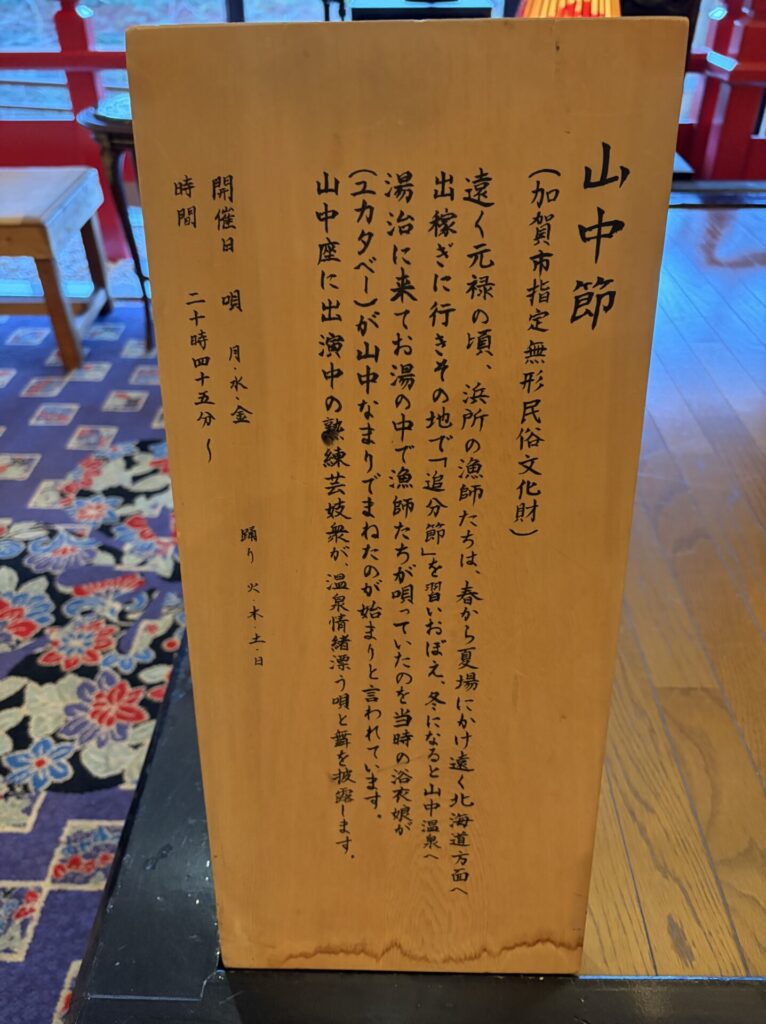 山中節
(加賀市指定無形民俗文化財)
遠く元禄の頃、浜所の漁師たちは、春から夏場にかけ遠く北海道方面へ
出稼ぎに行きその地で「追分節」を習いおぼえ、冬になると山中温泉へ
湯治に来てお湯の中で漁師たちが唄っていたのを当時の浴衣娘が
(ユカタベー)が山中なまりでまねたのが始まりと言われています。
山中座に出演中の熟練芸妓衆が、温泉情緒漂う唄と舞を披露します。
開催日 唄 月・水・金 踊り 火・木・土・日
時間 二十時四十五分~